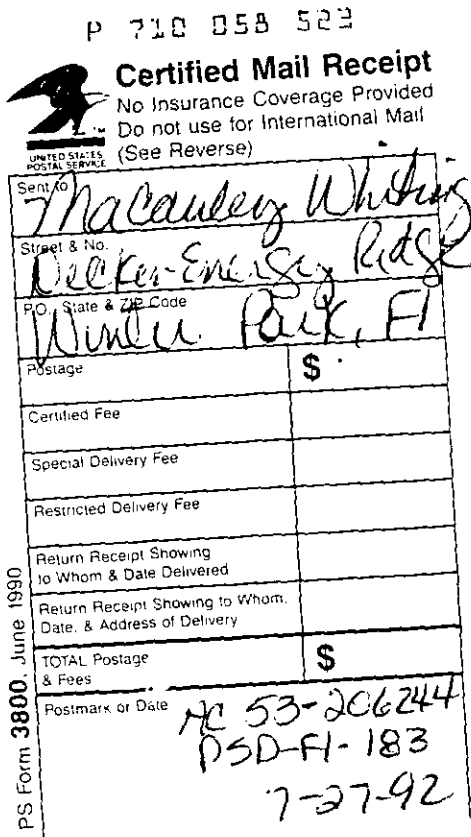 P 710 058 523
Certified Mail Receipt
No Insurance Coverage Provided
Do not use for International Mail
(See Reverse)
UNITED STATES
POSTAL SERVICE
Sent to
Macauley Whiting
Street & No.
Decker-Energy Ridge
P.O., State & ZIP Code
Winter Park, Fl
Postage
$
Certified Fee
Special Delivery Fee
Restricted Delivery Fee
Return Receipt Showing
to Whom & Date Delivered
Return Receipt Showing to Whom,
Date, & Address of Delivery
TOTAL Postage
& Fees
$
Postmark or Date
AC 53-206244
PSD-Fl-183
7-27-92
PS Form 3800, June 1990